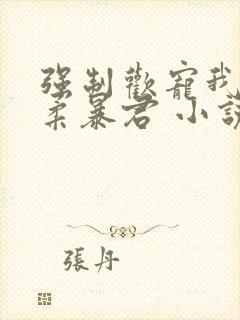 强制歡寵我
柔暴君 小説
張丹